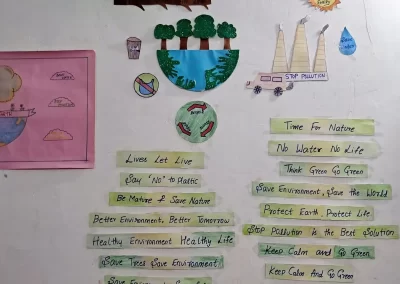 STOP POLLUTION
Lives Let Live
Say 'No' to Plastic
Be Mature & Save Nature
Better Environment, Better Tomorrow
Healthy Environment Healthy Life
Save Trees Save Environment
Time For Nature
No Water No Life
Think Green Go Green
Save Environment, Save the World
Protect Earth, Protect Life
Stop Pollution is the Best Solution
Keep Calm and Go Green
Keep Calm And Go Green